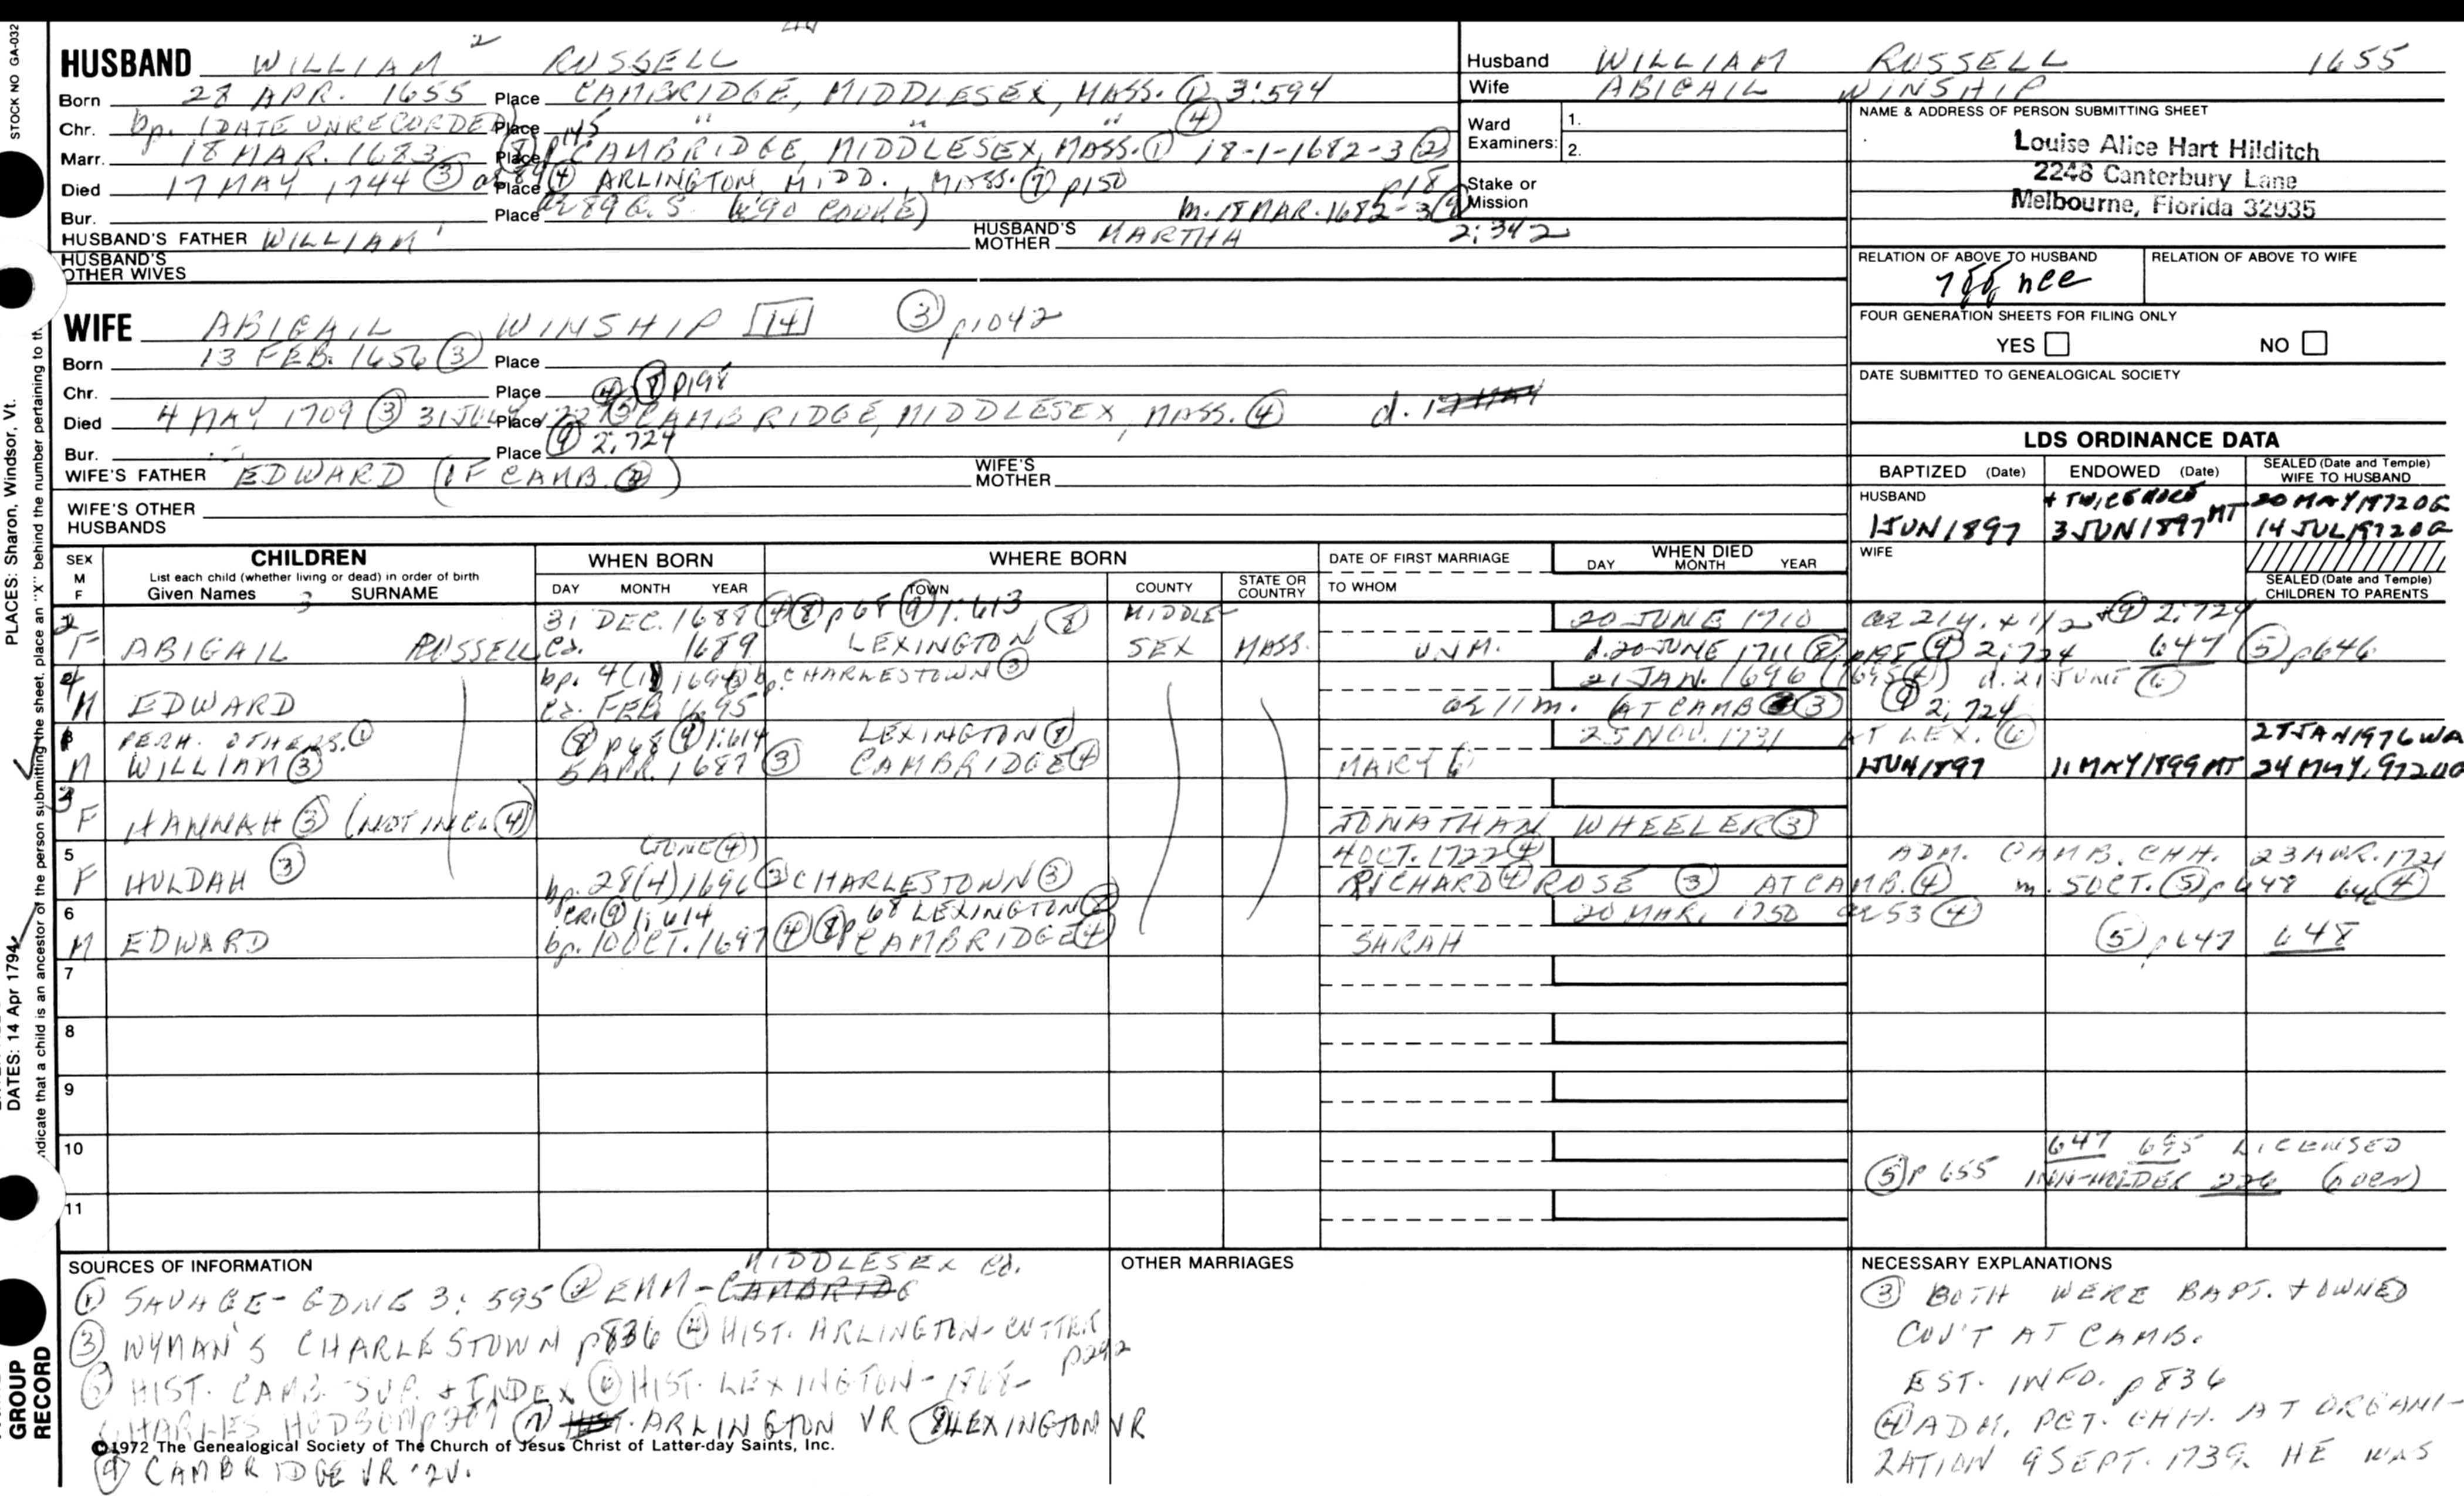 STOCK NO GA-032
PLACES: Sharon, Windsor, Vt.
DATES: 14 Apr 1794
indicate that a child is an ancestor of the person submitting the sheet, place an "X" behind the number pertaining to th
GROUP
RECORD
HUSBAND WILLIAM 2 RUSSELL
Born 28 APR. 1655 Place CAMBRIDGE, MIDDLESEX, MASS. ① 3:594
Chr. bp. (DATE UNRECORDED) Place " " " ④
Marr. 18 MAR. 1683 ⑧ p145 Place CAMBRIDGE, MIDDLESEX, MASS. ① 18-1-1682-3 ②
Died 17 MAY 1744 ③ ae 89 ④ Place ARLINGTON, MIDD., MASS. ⑦ p150 p18
Bur. Place ae 89 G.S. (w 90 COOKE) m. 18 MAR. 1682-3 ⑨
HUSBAND'S FATHER WILLIAM 1 HUSBAND'S MOTHER MARTHA 2:342
HUSBAND'S OTHER WIVES
WIFE ABIGAIL WINSHIP 14 ③ p1042
Born 13 FEB. 1656 ③ Place
Chr. Place ④ ⑧ p198
Died 4 MAY 1709 ③ 31 JULY Place CAMBRIDGE, MIDDLESEX, MASS. ④ d. 17 MAY
Bur. Place ⑨ 2:724
WIFE'S FATHER EDWARD (OF CAMB. ②) WIFE'S MOTHER
WIFE'S OTHER HUSBANDS
Husband WILLIAM RUSSELL 1655
Wife ABIGAIL WINSHIP
Ward Examiners: 1.
2.
Stake or Mission
NAME & ADDRESS OF PERSON SUBMITTING SHEET
Louise Alice Hart Hilditch
2248 Canterbury Lane
Melbourne, Florida 32935
RELATION OF ABOVE TO HUSBAND RELATION OF ABOVE TO WIFE
nee
FOUR GENERATION SHEETS FOR FILING ONLY
YES NO
DATE SUBMITTED TO GENEALOGICAL SOCIETY
LDS ORDINANCE DATA
BAPTIZED (Date) ENDOWED (Date) SEALED (Date and Temple) WIFE TO HUSBAND
HUSBAND + TWICE MORE 20 MAY 1972 OG
1 JUN 1897 3 JUN 1897 MT 14 JUL 1972 OG
WIFE
SEALED (Date and Temple) CHILDREN TO PARENTS
SEX M F CHILDREN WHEN BORN WHERE BORN DATE OF FIRST MARRIAGE WHEN DIED
List each child (whether living or dead) in order of birth
Given Names 3 SURNAME DAY MONTH YEAR TOWN COUNTY STATE OR COUNTRY TO WHOM DAY MONTH YEAR
2 31 DEC. 1688 ④ ⑧ p68 ⑨ 1:613 MIDDLE- 20 JUNE 1710 ae 21 y. + 1/2 ⑨ 2:724
F ABIGAIL RUSSELL ca. 1689 LEXINGTON ⑧ SEX MASS. UNM. d. 20 JUNE 1711 ⑧ p198 ⑨ 2:724 647 ⑤ p646
4 bp. 4(1) 1694 bp. CHARLESTOWN ③ 21 JAN. 1696 (1695 ④) d. 21 JUNE ⑥
M EDWARD ca. FEB 1695 ae 11 m. (AT CAMB ③ ⑨ 2:724
PERH. OTHERS. ① ⑧ p68 ⑨ 1:614 LEXINGTON ⑧ 25 NOV. 1731 AT LEX. ⑥ 27 JAN 1976 WA
M WILLIAM ③ 5 APR. 1687 ③ CAMBRIDGE ④ MARY 1 JUN 1897 11 MAY 1899 MT 24 MAY 1972 OG
3
F HANNAH ③ (NOT INCL ④) JONATHAN WHEELER ③
5 (JUNE ④) 4 OCT. 1722 ④ ADM. CAMB. CHH. 23 APR. 1721
F HULDAH ③ bp. 28(4) 1696 ③ CHARLESTOWN ③ RICHARD ④ ROSE ③ AT CAMB. ④ m. 5 OCT. ⑤ p 648
6 CR1 ⑨ 1:614 68 LEXINGTON ⑧ 20 MAR. 1750 ae 53 ④
M EDWARD bp. 10 OCT. 1697 ④ ⑧ p CAMBRIDGE ④ SARAH ⑤ p647 648
7
8
9
10 647 655 LICENSED
⑤ p 655 INN-HOLDER 226
11
SOURCES OF INFORMATION MIDDLESEX Co.
① SAVAGE-GDNE 3:595 ② EMM-CAMBRIDG
③ WYMAN'S CHARLESTOWN p836 ④ HIST. ARLINGTON-CUTTER
p292
⑤ HIST. CAMB. SUP. + INDEX ⑥ HIST. LEXINGTON-1868-
CHARLES HUDSON ⑦ HIST. ARLINGTON VR ⑧ LEXINGTON VR
©1972 The Genealogical Society of The Church of Jesus Christ of Latter-day Saints, Inc.
⑨ CAMBRIDGE VR 2V.
OTHER MARRIAGES
NECESSARY EXPLANATIONS
③ BOTH WERE BAPT. + OWNED
COV'T AT CAMB.
EST. INFO. p836
④ ADM. PCT. CHH. AT ORGANI-
ZATION 9 SEPT. 1739. HE WAS